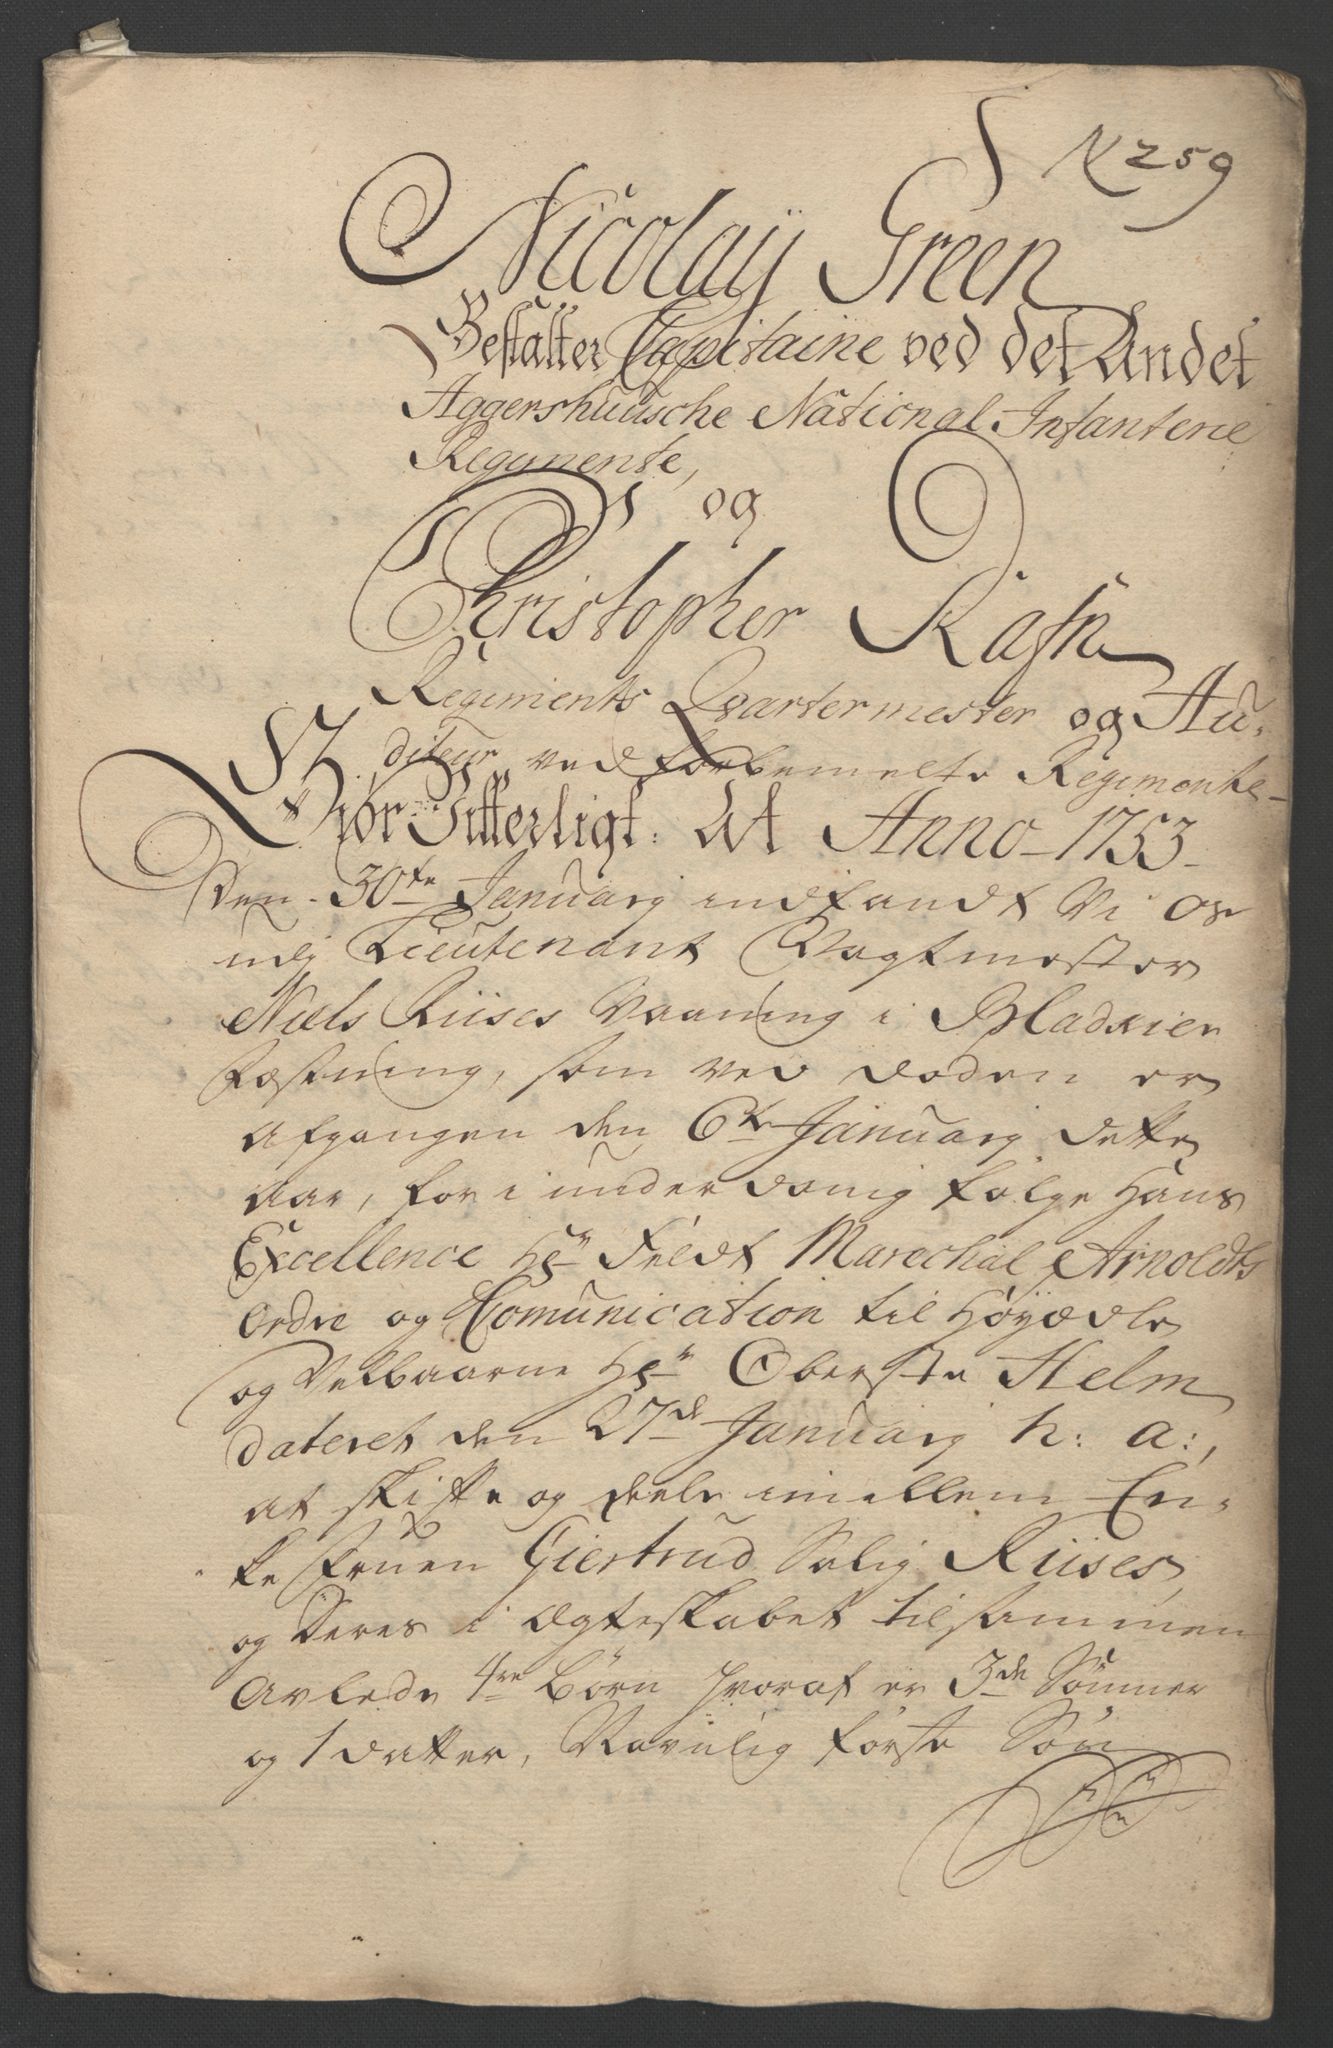 N 259
Nicolaÿ Green
Bestalter Capitaine ved det Andet
Aggershuusche National Infanterie
Regimente,
og
Christopher Rafn
Regiments Qvartermester og Au-
diteur ved forbemelte Regimente
Giør Vitterligt: At Anno 1753
den 30te Januarj indfandt Vi os
udj Lieutenant Vagtmester
Niels Riises Vaaning i Bladkier
fæstning, som ved døden er
afgangen den 6te Januarj dette
aar, for i underdanig følge Hans
Excellence Hrn Feldt Marechal Arnoldts
Ordre og Comunication til Høyædle
og Velbaarne Hrn Oberste Helm
dateret den 27de Januarj h: a:,
at skifte og deele imellem En-
ke Fruen Giertrud Salig Riises
og deres i Ægteskabet tilsammen
Avlede 4re Børn hvoraf er 3de Sønner
og 1 datter, Navnlig første Søn